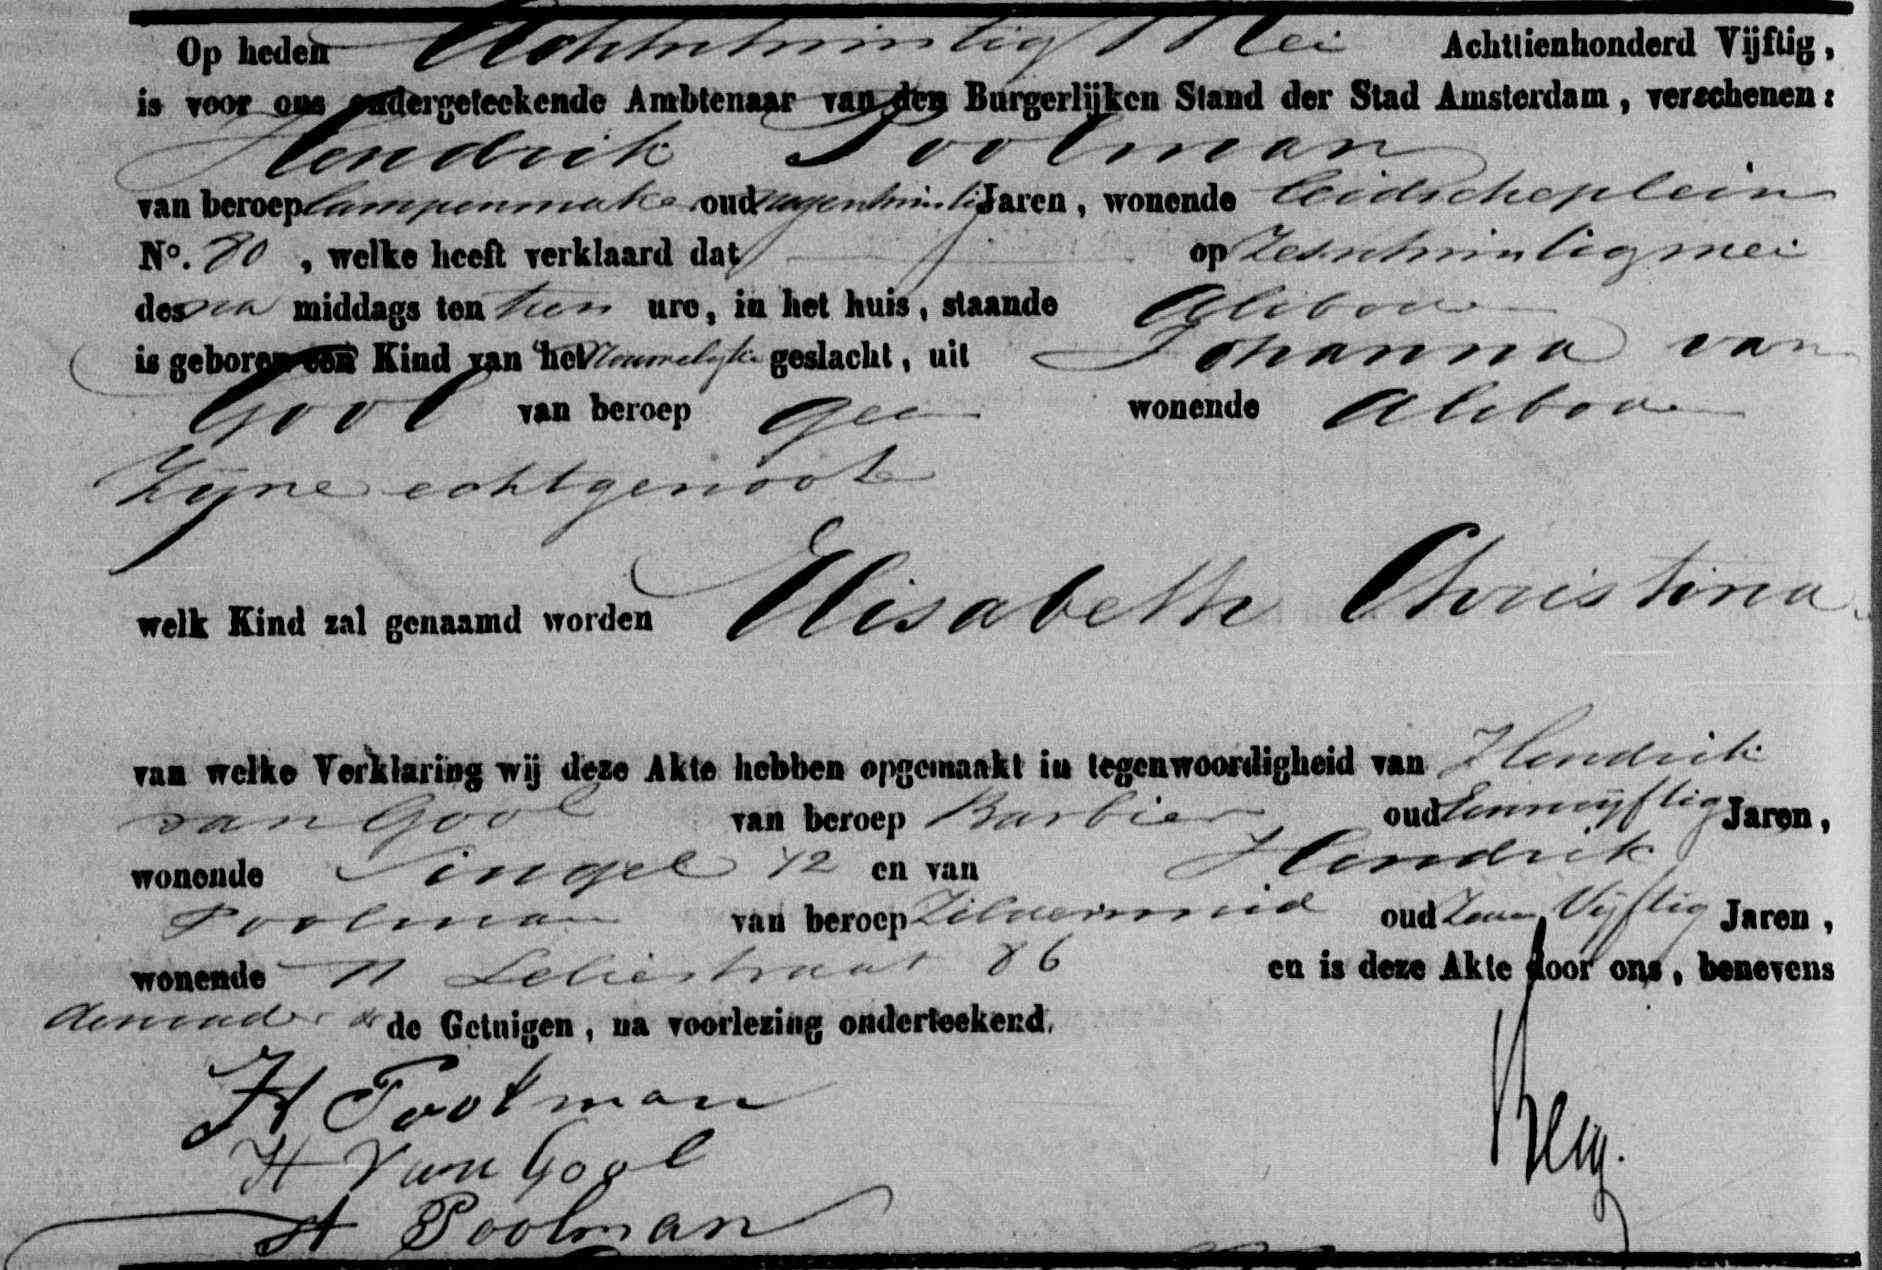 Op heden Achtentwintig Mei Achttienhonderd Vijftig,
is voor ons ondergeteekende Ambtenaar van den Burgerlijken Stand der Stad Amsterdam, verschenen:
Hendrik Poolman
van beroep lampenmaker oud Jaren, wonende Leidscheplein
No. 80, welke heeft verklaard dat op Zesentwintig mei
des na middags ten tien ure, in het huis, staande Alsboven
is geboren een Kind van het Vrouwelijke geslacht, uit Johanna van
Gool van beroep geen wonende Alsboven
Zijne echtgenoote
welk Kind zal genaamd worden Elisabeth Christina
van welke Verklaring wij deze Akte hebben opgemaakt in tegenwoordigheid van Hendrik
van Gool van beroep Barbier oud Eenenvijftig Jaren,
wonende Singel 42 en van Hendrik
Poolman van beroep Zilversmid oud Vijftig Jaren,
wonende N Leliestraat 86 en is deze Akte door ons, benevens
de Getuigen, na voorlezing onderteekend.
H Poolman
H Van Gool
H Poolman
Berg.